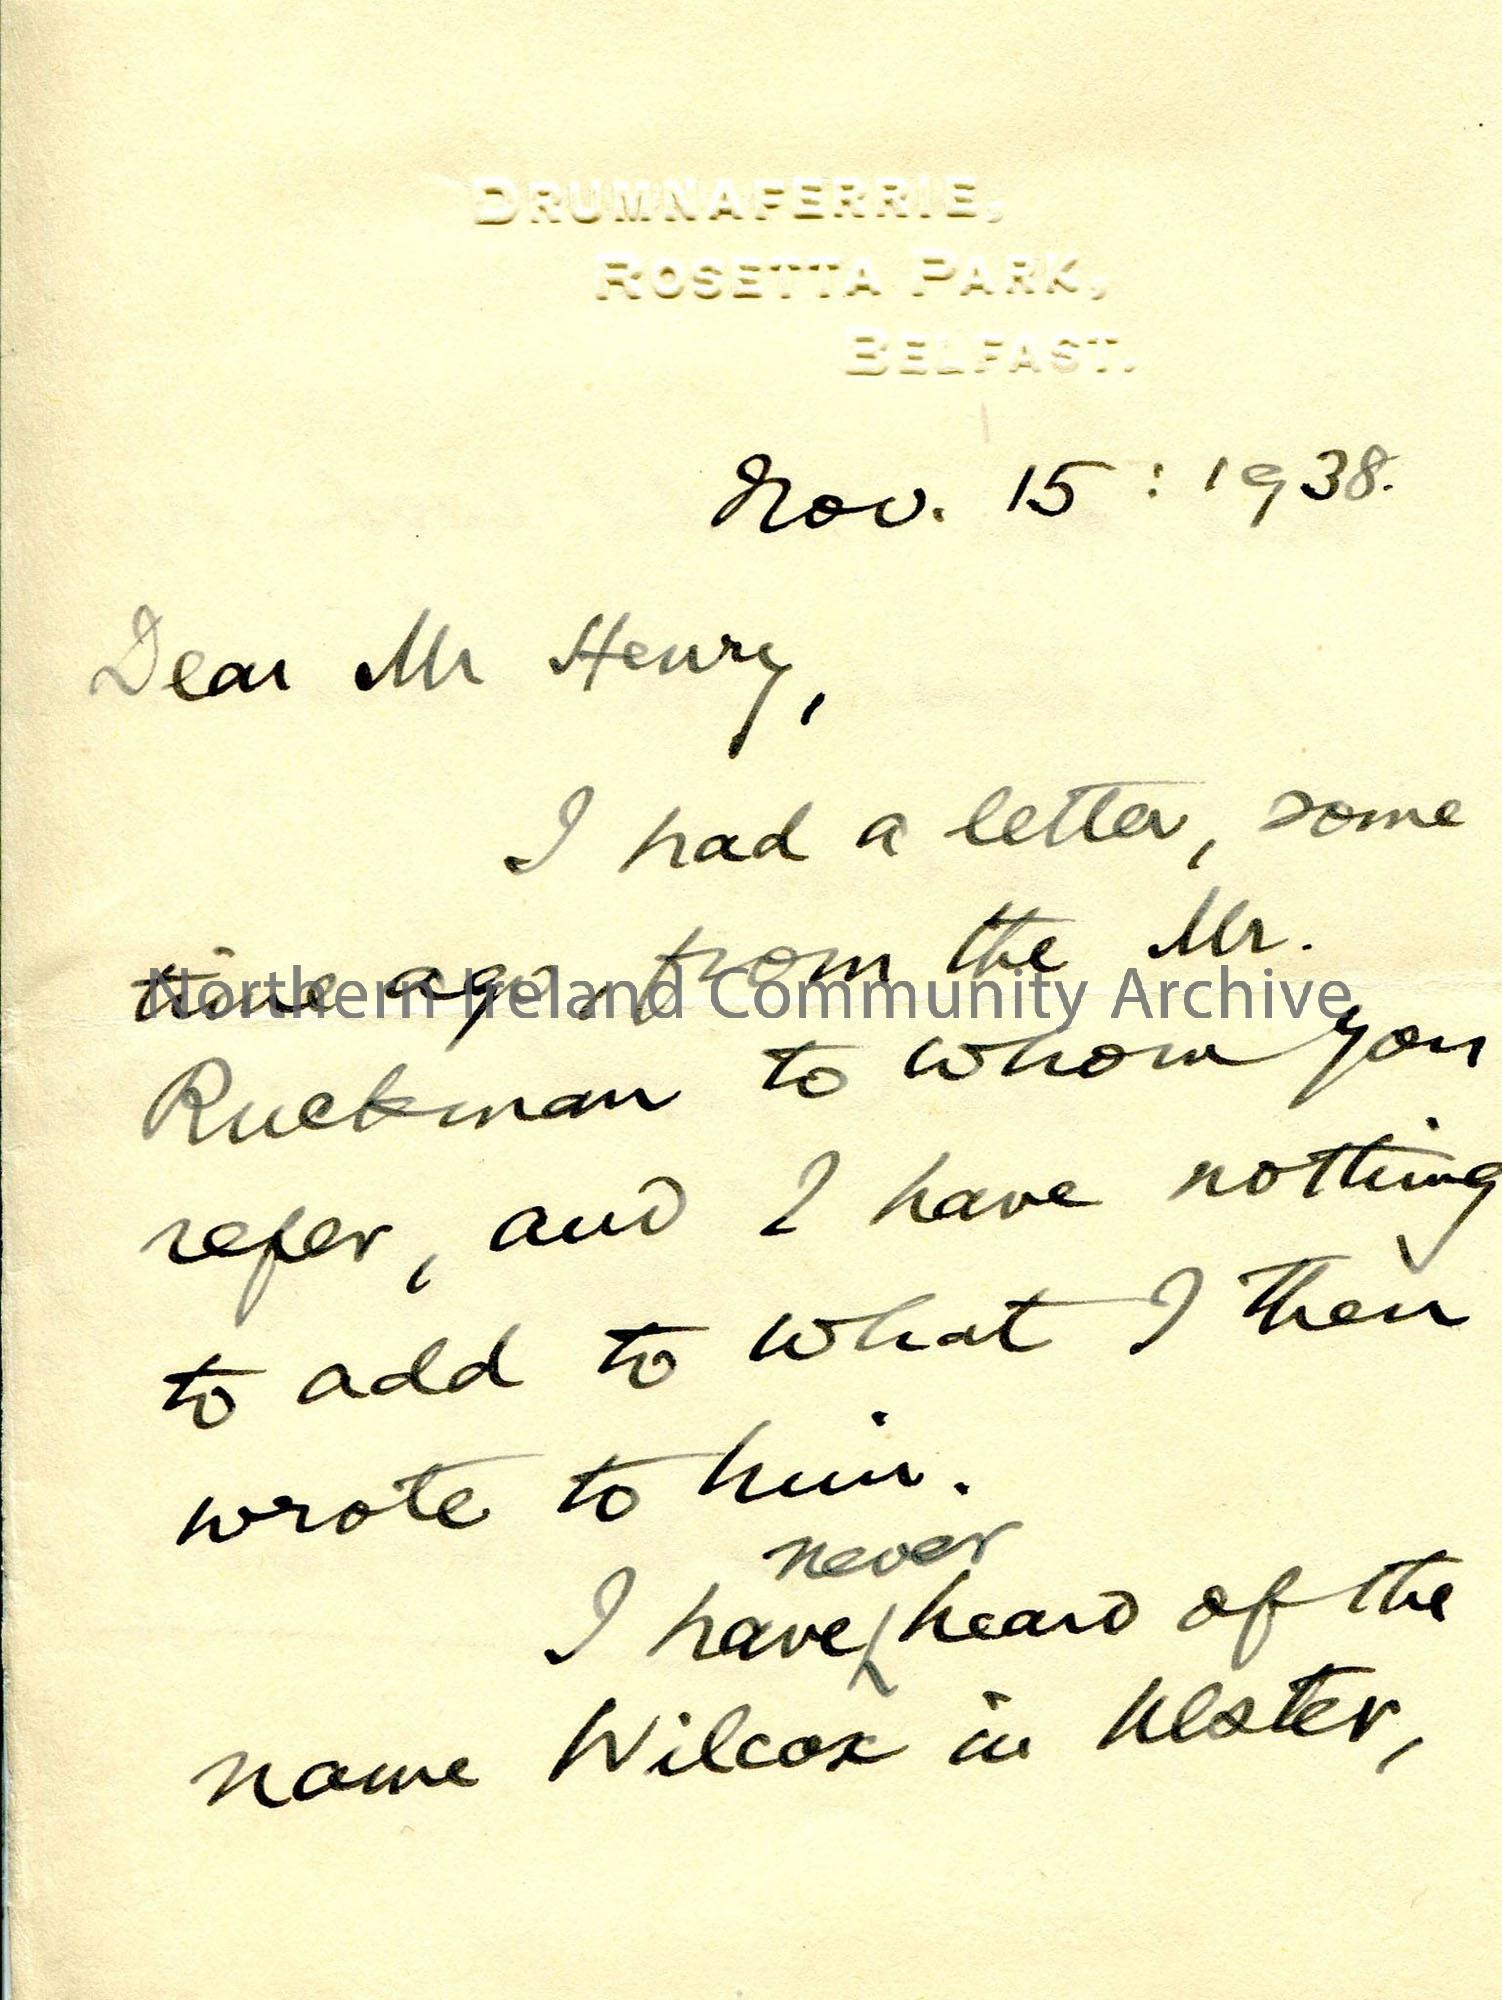 DRUMNAFERRIE,
ROSETTA PARK,
BELFAST.
Nov. 15 : 1938.
Dear Mr Henry,
I had a letter, some
time ago, from the Mr.
Northern Ireland Community Archive
Ruckman to whom you
refer, and I have nothing
to add to what I then
wrote to him.
never
I have heard of the
name Wilcox in Ulster,